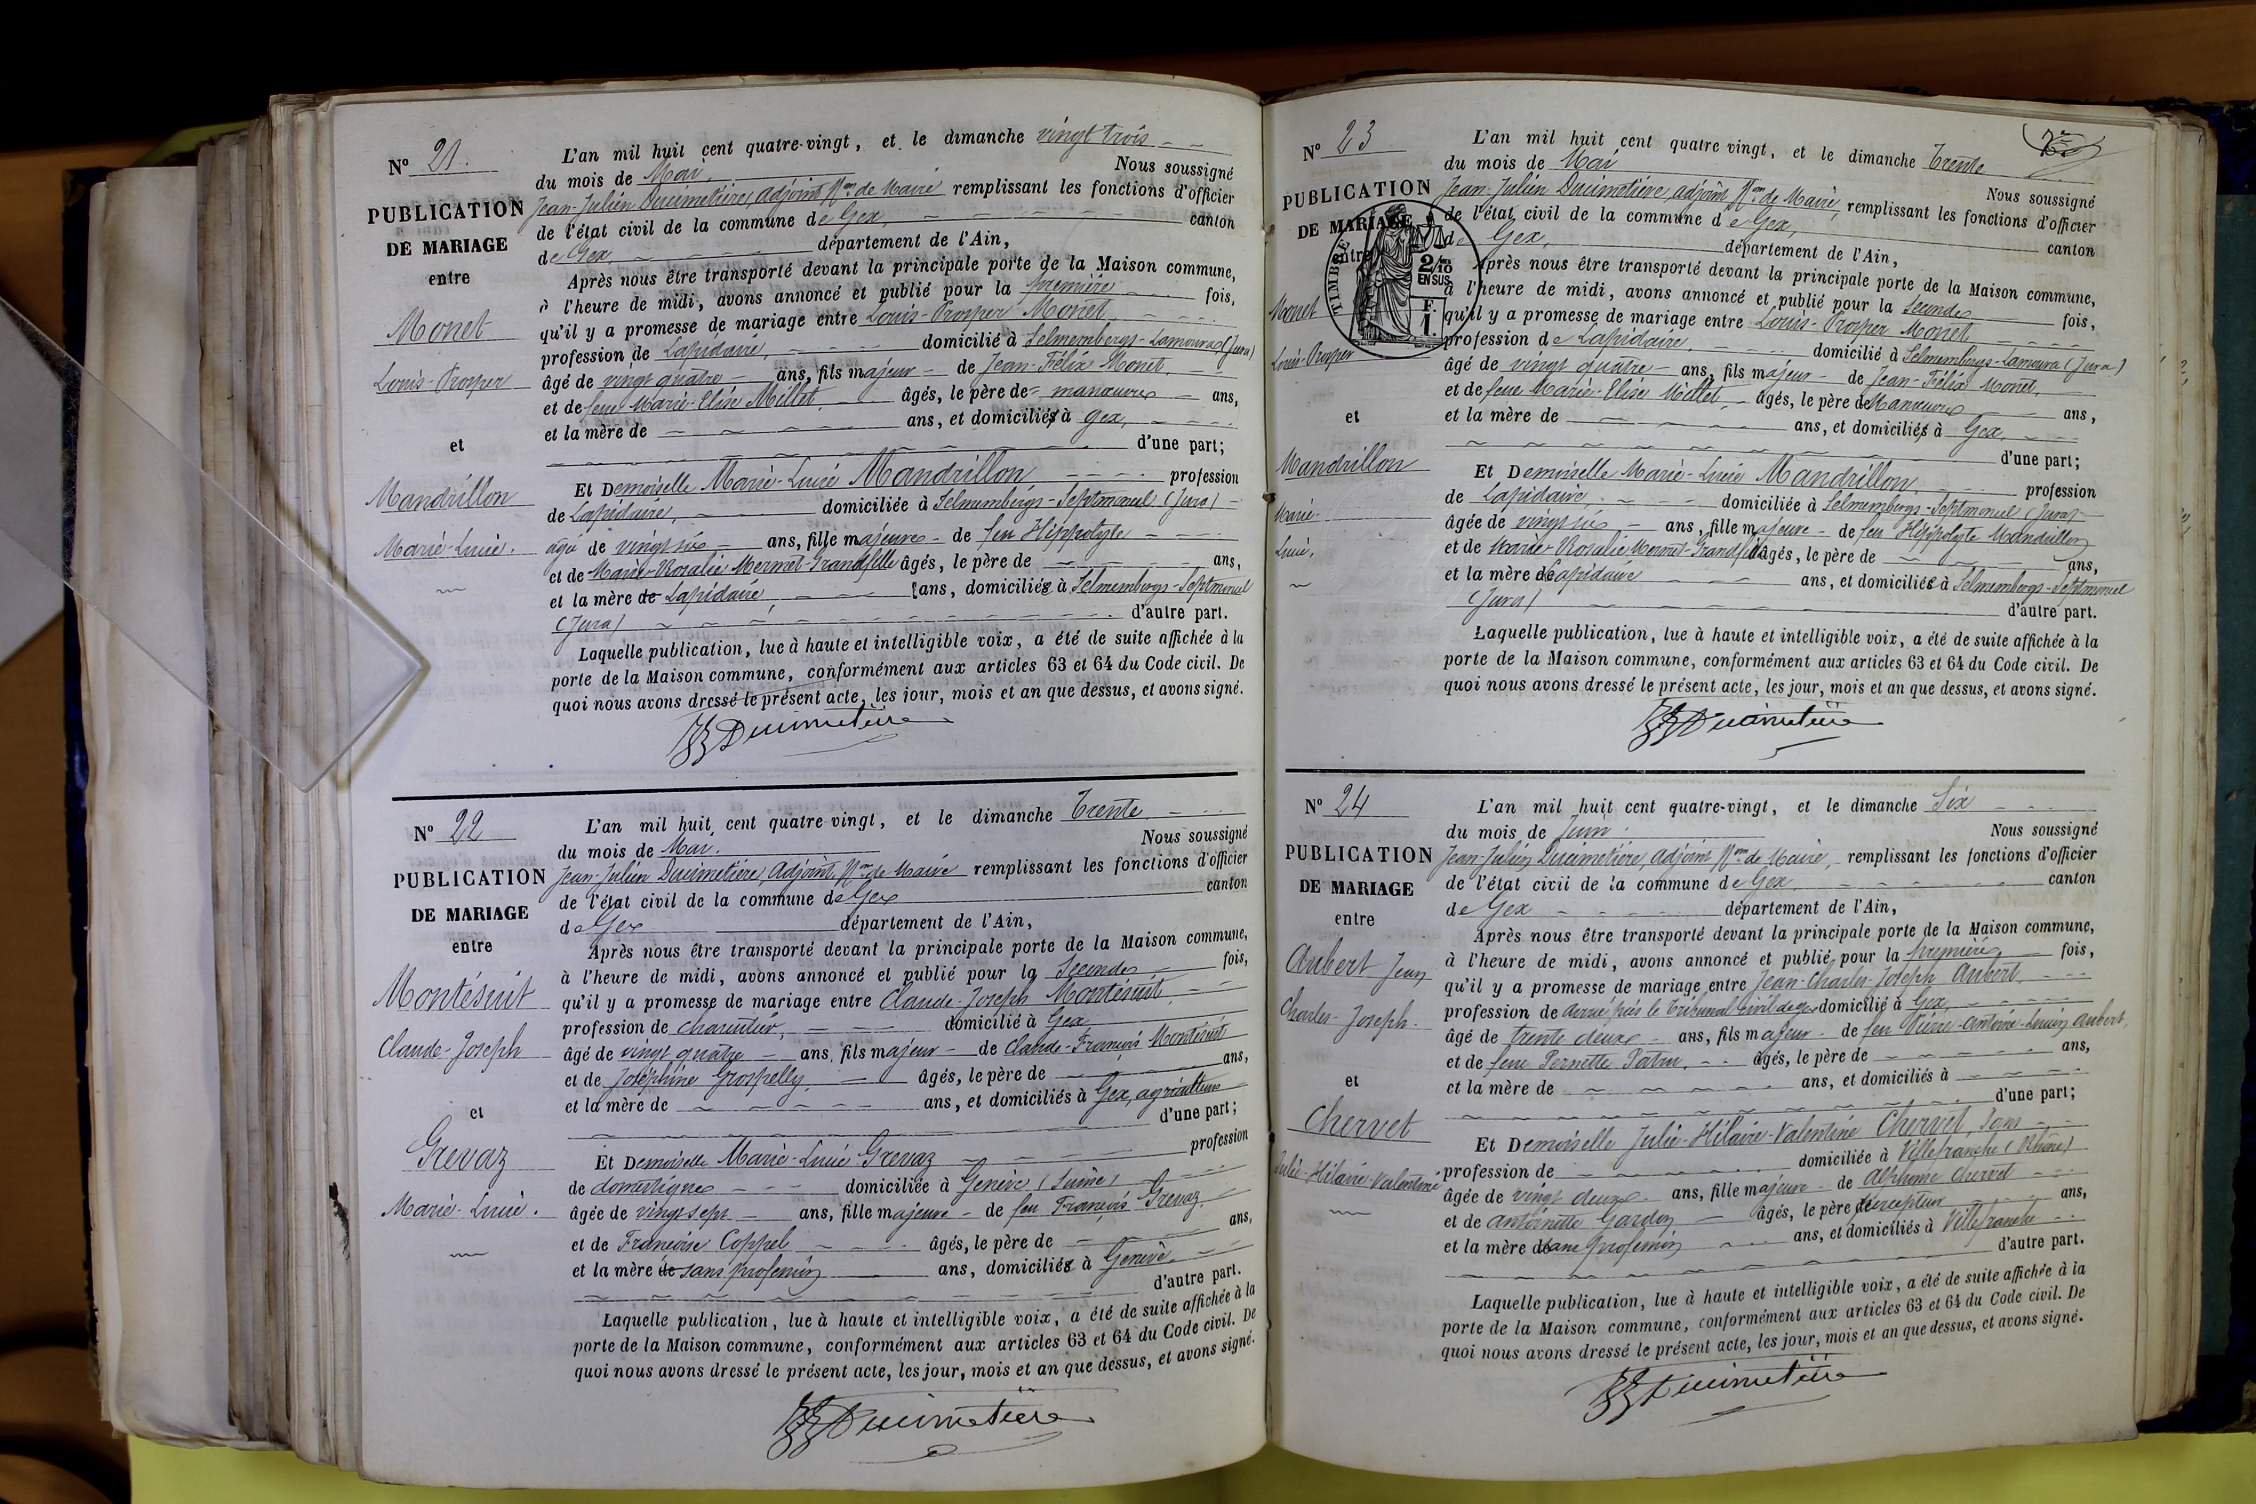 N° 21.
PUBLICATION
DE MARIAGE
entre
Monet
Louis-Prosper
et
Mandrillon
Marie-Lucie.
L'an mil huit cent quatre-vingt, et le dimanche vingt trois
du mois de Mai. Nous soussigné
Jean-Julien Ducimetière, adjoint, Non de Maire remplissant les fonctions d'officier
de l'état civil de la commune de Gex, canton
de Gex, département de l'Ain,
Après nous être transporté devant la principale porte de la Maison commune,
à l'heure de midi, avons annoncé et publié pour la première fois,
qu'il y a promesse de mariage entre Louis-Prosper Monet
profession de Lapidaire, domicilié à Selmembergs-Lamoura (Jura)
âgé de vingt quatre ans, fils majeur de Jean-Félix Monet,
et de feue Marie-Elise Millet, âgés, le père de manœuvre ans,
et la mère de ans, et domiciliés à Gex,
d'une part;
Et Demoiselle Marie-Lucie Mandrillon profession
de Lapidaire, domiciliée à Selmembergs-Septmoncel (Jura)
âgée de vingt six ans, fille majeure de feu Hippolyte
et de Marie-Rosalie Mermet-Grandfille âgés, le père de ans,
et la mère de Lapidaire, ans, domiciliés à Selmembergs-Septmoncel
(Jura) d'autre part.
Laquelle publication, lue à haute et intelligible voix, a été de suite affichée à la
porte de la Maison commune, conformément aux articles 63 et 64 du Code civil. De
quoi nous avons dressé le présent acte, les jour, mois et an que dessus, et avons signé.
Ducimetière
N° 22
PUBLICATION
DE MARIAGE
entre
Montésuit
Claude-Joseph
et
Grevaz
Marie-Lucie.
L'an mil huit cent quatre-vingt, et le dimanche Trente
du mois de Mai. Nous soussigné
Jean-Julien Ducimetière, Adjoint, Non de Maire remplissant les fonctions d'officier
de l'état civil de la commune de Gex canton
de Gex département de l'Ain,
Après nous être transporté devant la principale porte de la Maison commune,
à l'heure de midi, avons annoncé et publié pour la Seconde fois,
qu'il y a promesse de mariage entre Claude-Joseph Montésuit,
profession de charcutier, domicilié à Gex
âgé de vingt quatre ans, fils majeur de Claude-François Montésuit
et de Joséphine Grospelly, âgés, le père de ans,
et la mère de ans, et domiciliés à Gex, agriculteurs
d'une part;
Et Demoiselle Marie-Lucie Grevaz profession
de domestique domiciliée à Genève (Suisse)
âgée de vingt sept ans, fille majeure de feu François Grevaz
et de Françoise Coppel âgés, le père de ans,
et la mère de sans profession ans, domiciliés à Genève.
d'autre part.
Laquelle publication, lue à haute et intelligible voix, a été de suite affichée à la
porte de la Maison commune, conformément aux articles 63 et 64 du Code civil. De
quoi nous avons dressé le présent acte, les jour, mois et an que dessus, et avons signé.
Ducimetière
N° 23
PUBLICATION
DE MARIAGE
entre
Monet
Louis-Prosper
et
Mandrillon
Marie-
Lucie,
TIMBRE
2/10
EN SUS
F.
1.
L'an mil huit cent quatre vingt, et le dimanche Trente
du mois de Mai Nous soussigné
Jean-Julien Ducimetière, adjoint, Non de Maire, remplissant les fonctions d'officier
de l'état civil de la commune de Gex, canton
de Gex, département de l'Ain,
Après nous être transporté devant la principale porte de la Maison commune,
à l'heure de midi, avons annoncé et publié pour la Seconde fois,
qu'il y a promesse de mariage entre Louis-Prosper Monet
profession de Lapidaire, domicilié à Selmembergs-Lamoura (Jura)
âgé de vingt quatre ans, fils majeur de Jean-Félix Monet,
et de feue Marie-Elise Millet, âgés, le père de Manœuvre ans,
et la mère de ans, et domiciliés à Gex,
d'une part;
Et Demoiselle Marie-Lucie Mandrillon profession
de Lapidaire, domiciliée à Selmembergs-Septmoncel (Jura)
âgée de vingt six ans, fille majeure de feu Hippolyte Mandrillon
et de Marie-Rosalie Mermet-Grandfille âgés, le père de ans,
et la mère de Lapidaire ans, et domiciliés à Selmembergs-Septmoncel
(Jura) d'autre part.
Laquelle publication, lue à haute et intelligible voix, a été de suite affichée à la
porte de la Maison commune, conformément aux articles 63 et 64 du Code civil. De
quoi nous avons dressé le présent acte, les jour, mois et an que dessus, et avons signé.
Ducimetière
N° 24
PUBLICATION
DE MARIAGE
entre
Aubert Jean
Charles-Joseph.
et
Chervet
Julie-Hilaire Valentine
L'an mil huit cent quatre-vingt, et le dimanche Six
du mois de Juin. Nous soussigné
Jean-Julien Ducimetière, adjoint, Non de Maire, remplissant les fonctions d'officier
de l'état civil de la commune de Gex, canton
de Gex département de l'Ain,
Après nous être transporté devant la principale porte de la Maison commune,
à l'heure de midi, avons annoncé et publié pour la première fois,
qu'il y a promesse de mariage entre Jean-Charles-Joseph Aubert
profession de Avoué près le Tribunal Civil de Gex domicilié à Gex,
âgé de trente deux ans, fils majeur de feu Pierre-Antoine-Louis Aubert,
et de feue Pernette âgés, le père de ans,
et la mère de ans, et domiciliés à
d'une part;
Et Demoiselle Julie-Hilaire-Valentine Chervet Sans
profession de domiciliée à Villefranche (Rhône)
âgée de vingt deux ans, fille majeure de Alphonse Chervet
et de Antoinette Gardon âgés, le père de Percepteur ans,
et la mère de sans profession ans, et domiciliés à Villefranche
d'autre part.
Laquelle publication, lue à haute et intelligible voix, a été de suite affichée à la
porte de la Maison commune, conformément aux articles 63 et 64 du Code civil. De
quoi nous avons dressé le présent acte, les jour, mois et an que dessus, et avons signé.
Ducimetière